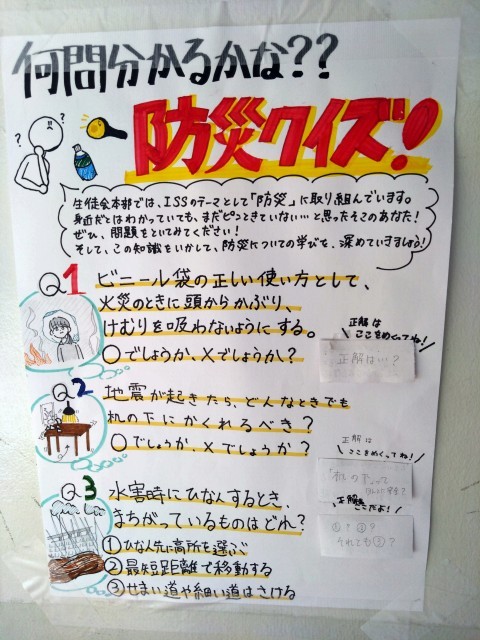 何問分かるかな??
防災クイズ!
生徒会本部では、ISSのテーマとして「防災」に取り組んでいます。
身近だとはわかっていても、まだピンときていない…と思ったそこのあなた!
ぜひ、問題をといてみてください!
そして、この知識をいかして、防災についての学びを、深めていきましょう!
Q1 ビニール袋の正しい使い方として、
火災のときに頭からかぶり、
けむりを吸わないようにする。
○でしょうか、×でしょうか?
正解は
ここをめくってね!
正解は…?
Q2 地震が起きたら、どんなときでも
机の下にかくれるべき?
○でしょうか、×でしょうか?
正解は
ここをめくってね!
「机の下」って
Q3 水害時にひなんするとき、
まちがっているものはどれ?
①ひなん先に高所を選ぶ
②最短距離で移動する
③せまい道や細い道はさける
正解は
ここだよ!
①?②?
それとも③?